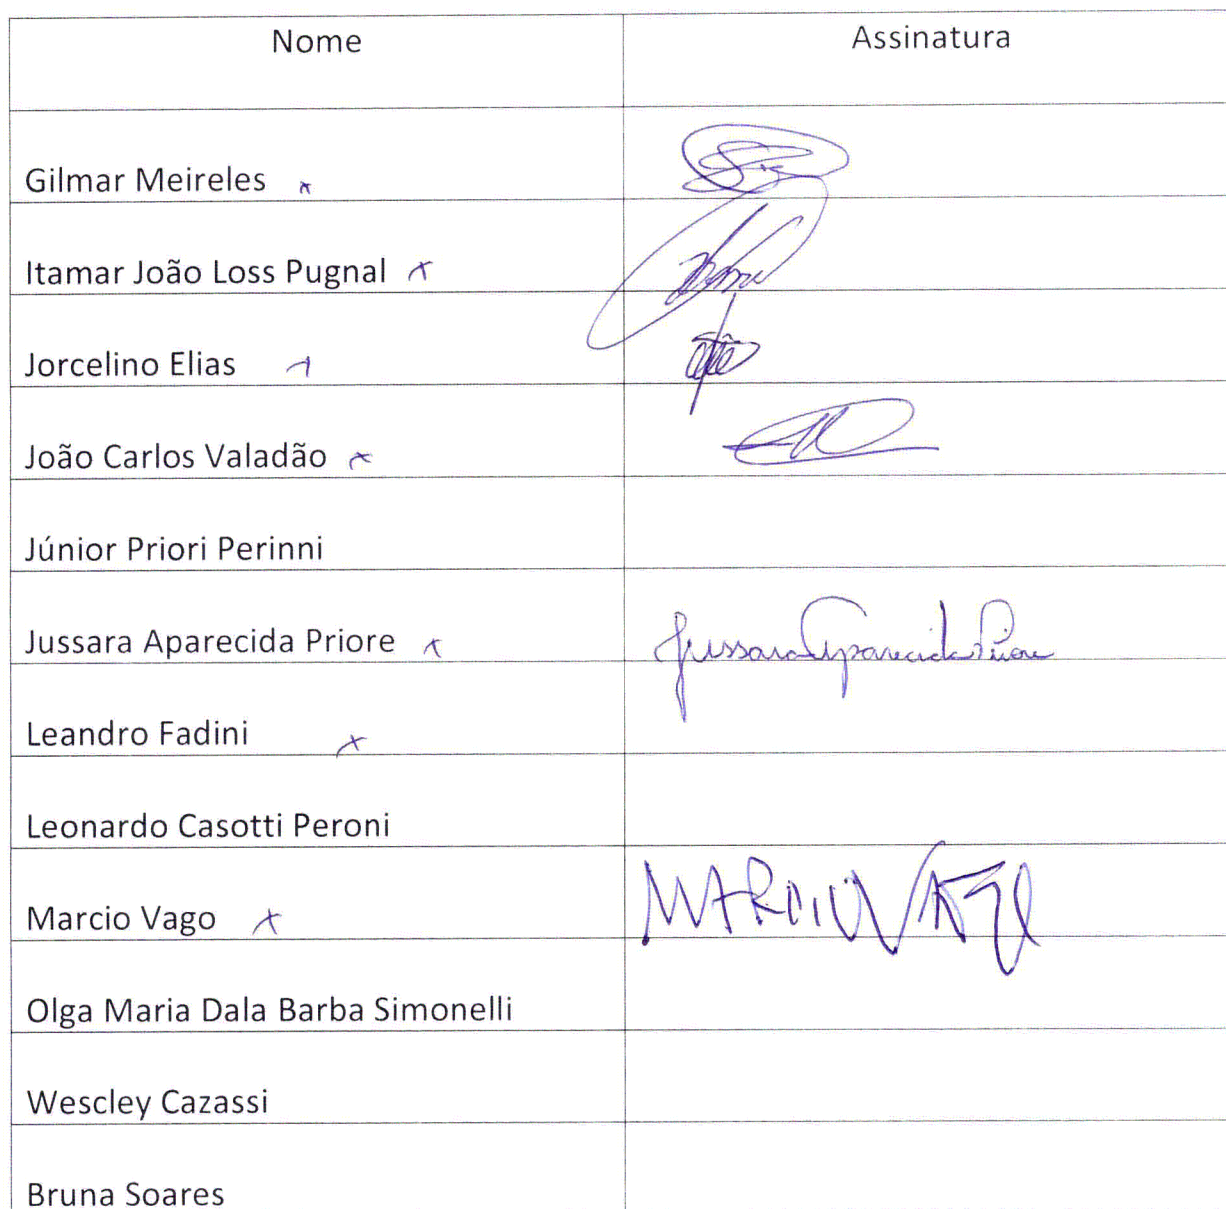 Nome Assinatura
Gilmar Meireles x
Itamar João Loss Pugnal x
Jorcelino Elias
João Carlos Valadão x
Júnior Priori Perinni
Jussara Aparecida Priore x Jussara Aparecida Priore
Leandro Fadini x
Leonardo Casotti Peroni
Marcio Vago x MARCIO VAGO
Olga Maria Dala Barba Simonelli
Wescley Cazassi
Bruna Soares